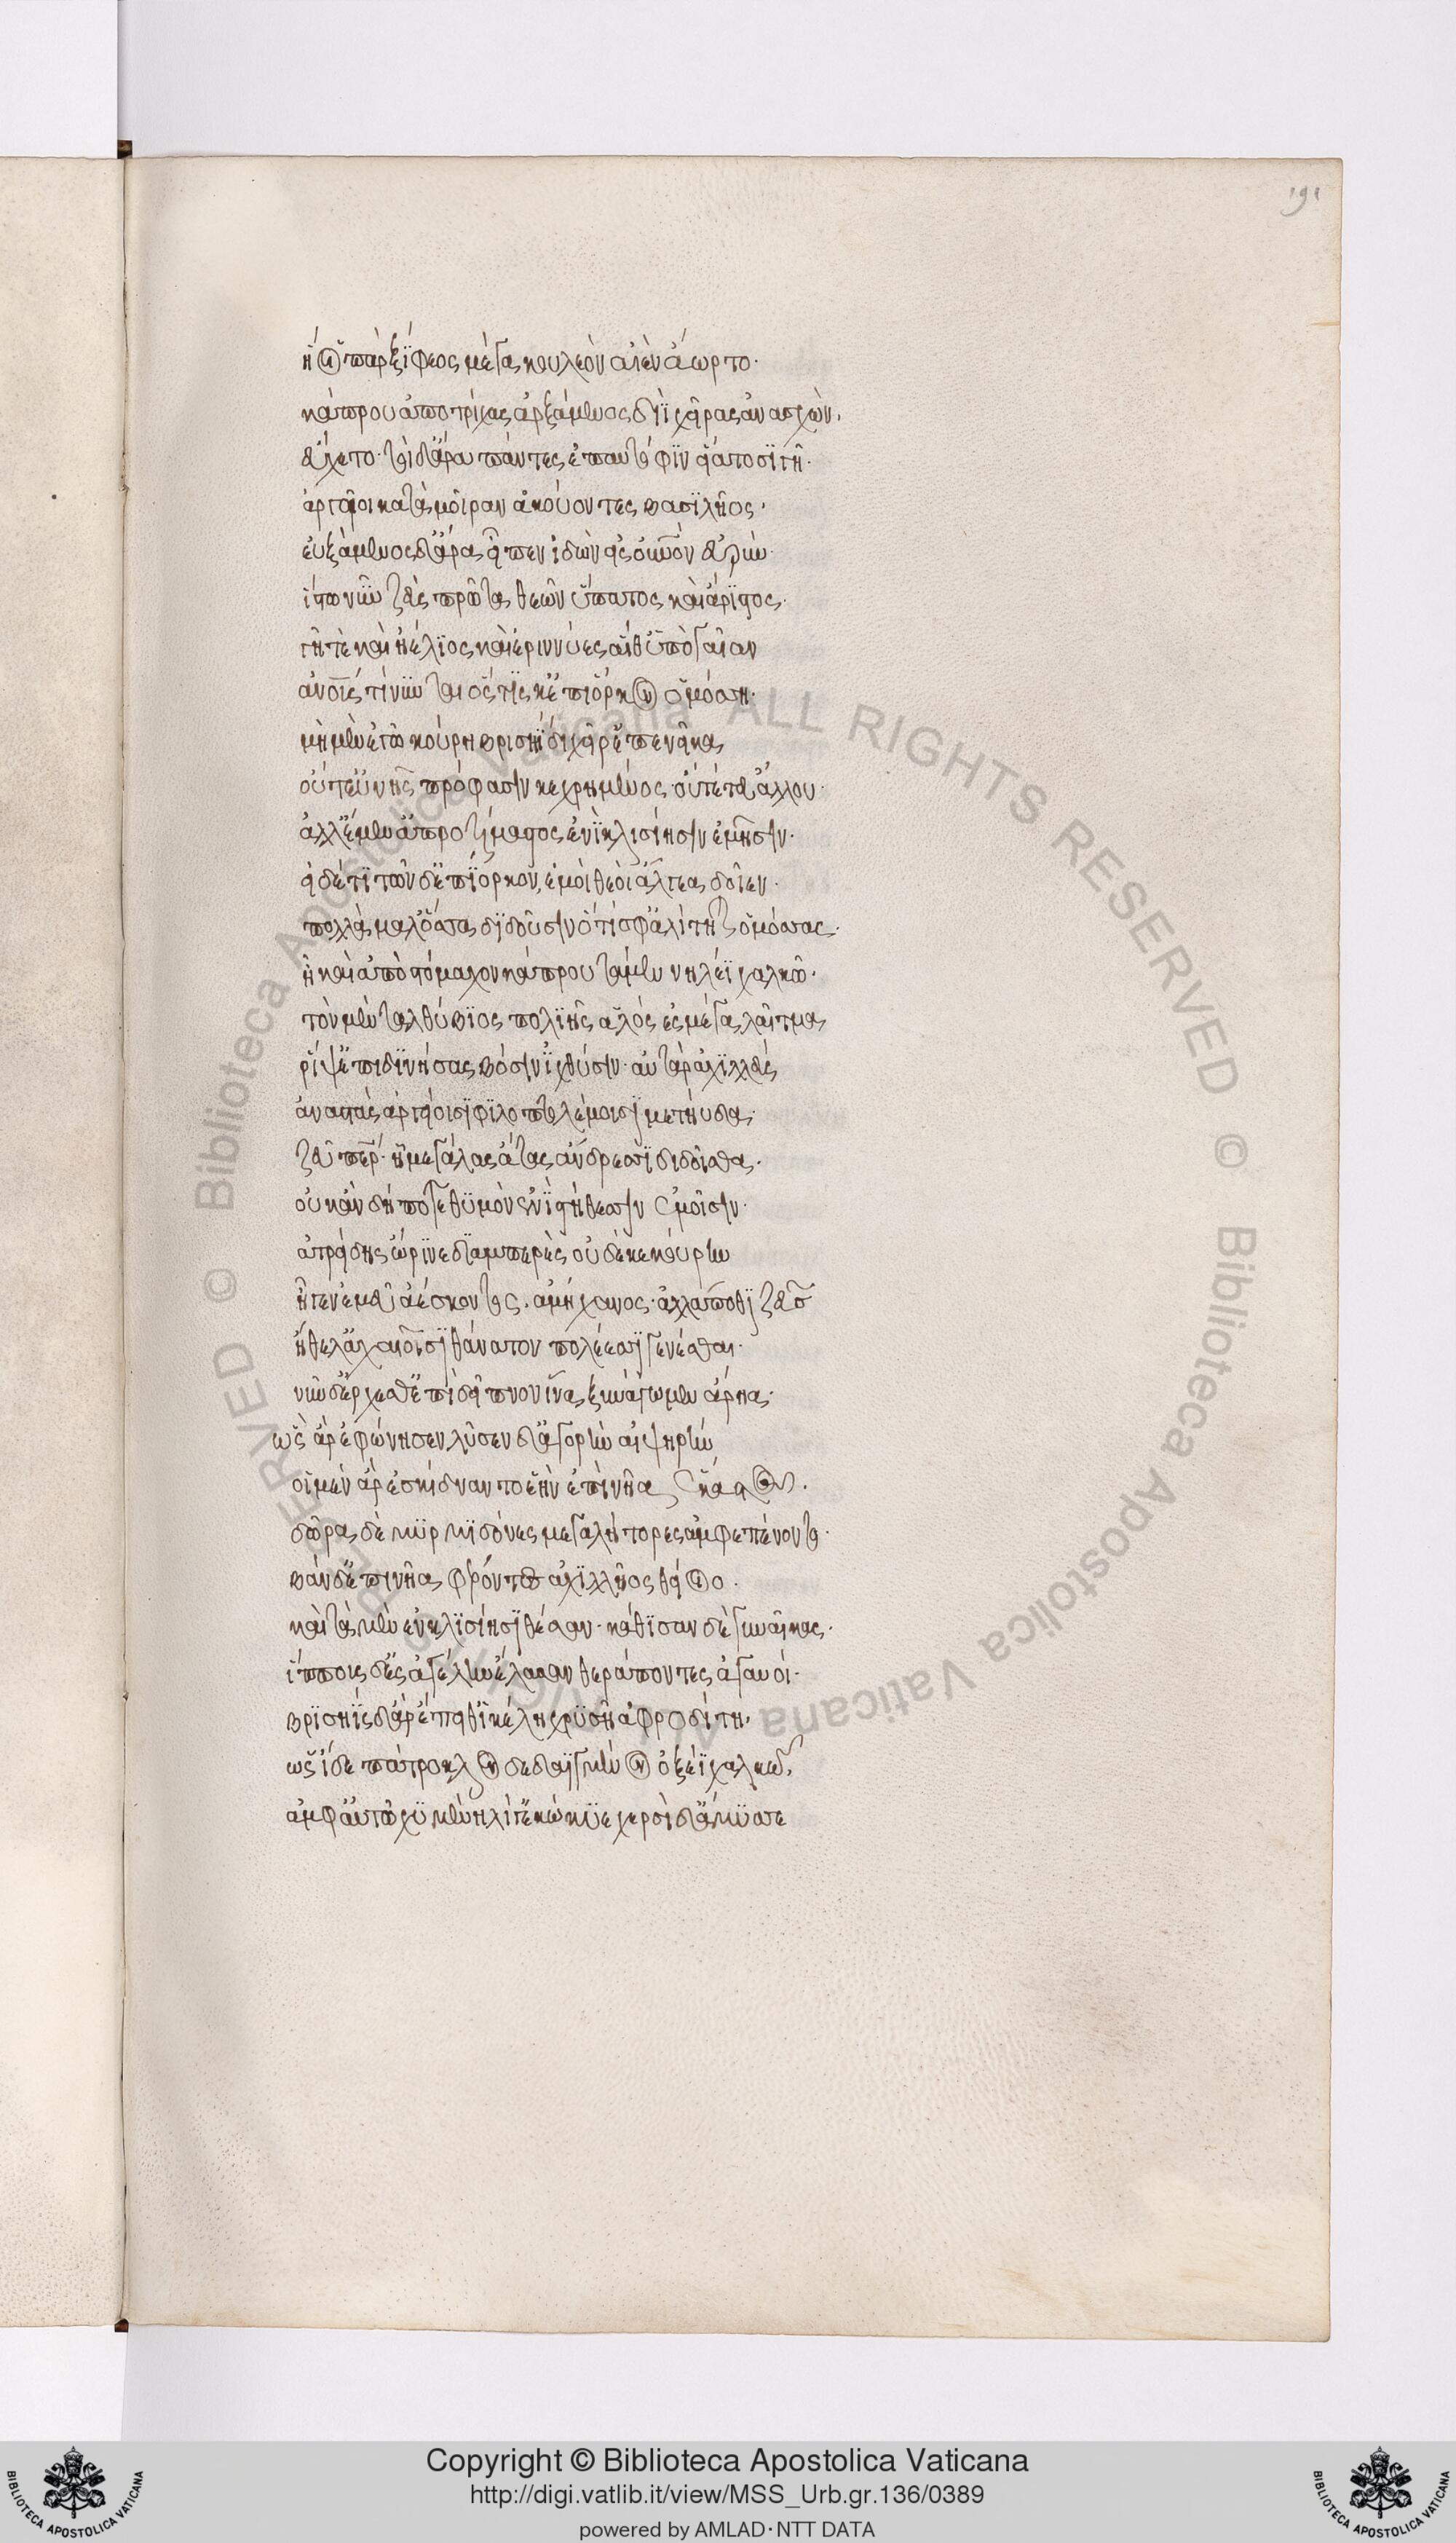 191
ἥ οἱ πὰρ ξίφεος μέγα κουλεὸν αἰὲν ἄωρτο·
κάπρου ἀπο τρίχας ἀρξάμενος διῒ χεῖρας ἀνασχὼν·
εὔχετο· τοὶ δἄρα πάντες ἐπαυτόφιν εἵατο σϊγῆ·
ἀργεῖοι κατὰ μοῖραν ἀκούοντες βασϊλῆος·
εὐξάμενος δἄρα εἶπεν ἰδὼν εἰς οὐρανὸν εὐρύν·
ἴστω νῦν ζεὺς πρῶτα θεῶν ὕπατος καὶ ἄρϊστος·
γῆ τὲ καὶ ἠέλϊος καὶ ἐριννύες αἵθ ὑπὸ γαῖαν
ἀνοῖς τίνϋνται ὅς τίς κ ἐπιὄρκον ὀμόσση·
μὴ μὲν ἐγὼ κούρη βρισηΐδι χεῖρ ἐπενεῖκα
οὔτ εὐνῆς πρόφασιν κεχρημένος οὔτέ τευ ἄλλου·
ἀλλ ἔμεν ἀπροτίμαστος ἐνὶ κλισίησιν ἐμῆσιν·
εἰ δέ τι τῶν δ ἐπίορκον, ἐμοὶ θεοὶ ἄλγεα δοῖεν·
πολλὰ μαλ ὅσσα διδοῦσιν ὅτίσφ ἀλίτηται ὀμόσσας·
ἦ καὶ ἀπὸ στόμαχον κάπρου τάμεν νηλέϊ χαλκῶ·
τὸν μὲν ταλθύβϊος πολϊῆς ἁλὸς ἐς μέγα λαῖτμα
ῥῖψ ἐπιδϊνήσας βόσιν ἰχθύσιν· αὐτὰρ ἀχϊλλεὺς
ἀναστὰς ἀργείοισϊ φϊλοπτολέμοισϊ μετηύδα·
ζεῦ πάτερ· ἦ μεγάλας ἄτας ἄνδρεσσϊ διδοῖσθα·
οὐκ ἂν δήποτε θϋμὸν ἐνὶ στήθεσσιν ἐμοῖσιν·
ἀτρείδης ὤρϊνε δϊαμπερὲς οὐδέ κε κούρην
ἦγεν ἐμεῦ ἀέκοντος ἀμήχανος· ἀλλά ποθϊ ζεὺς
ἤθελ ἀχαιοῖσϊ θάνατον πολέεσσϊ γενέσθαι·
νῦν δ ἔρχεσθ ἐπὶ δεῖπνον ἵνα ξυνάγωμεν ἄρηα·
ὣς ἄρ ἐφώνησεν, λῦσεν δ ἀγορὴν αἰψηρὴν
οἱ μὲν ἄρ ἐσκίδναντο ἑὴν ἐπὶ νῆα ἕκαστος·
δῶρα δὲ μϋρμϊδόνες μεγαλήτορες ἀμφεπένοντο·
βὰν δ ἐπι νῆα φέροντες ἀχϊλλῆος θείοιο·
καὶ τὰ μὲν ἐν κλϊσίησϊ θέσαν· κάθϊσαν δὲ γυναῖκας·
ἵππους δ εἰς ἀγέλην ἔλασαν θεράποντες ἀγαυοί·
βρϊσηῒς δ ἄρ ἔπειθ ἰκέλη χρϋσῆ ἀφροδίτη·
ὡς ἴδε πάτροκλον δεδαϊγμένον ὀξέϊ χαλκῶ,
ἀμφ αὐτῶ χϋμένη λίγ ἐκώκϋε χερσὶ δ ἄμϋσσε
Copyright © Biblioteca Apostolica Vaticana
http://digi.vatlib.it/view/MSS_Urb.gr.136/0389
powered by AMLAD·NTT DATA